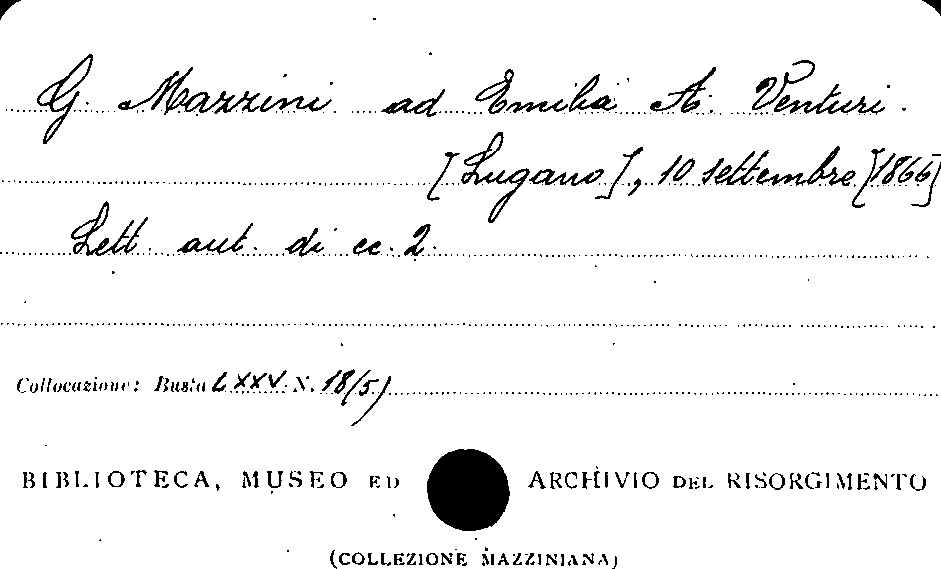 G. Mazzini ad Emilia A. Venturi.
[Lugano], 10 settembre [1866]
Lett. aut. di cc. 2.
Collocazione: Busta LXXV N. 18/5)
BIBLIOTECA, MUSEO ED ARCHIVIO DEL RISORGIMENTO
(COLLEZIONE MAZZINIANA)